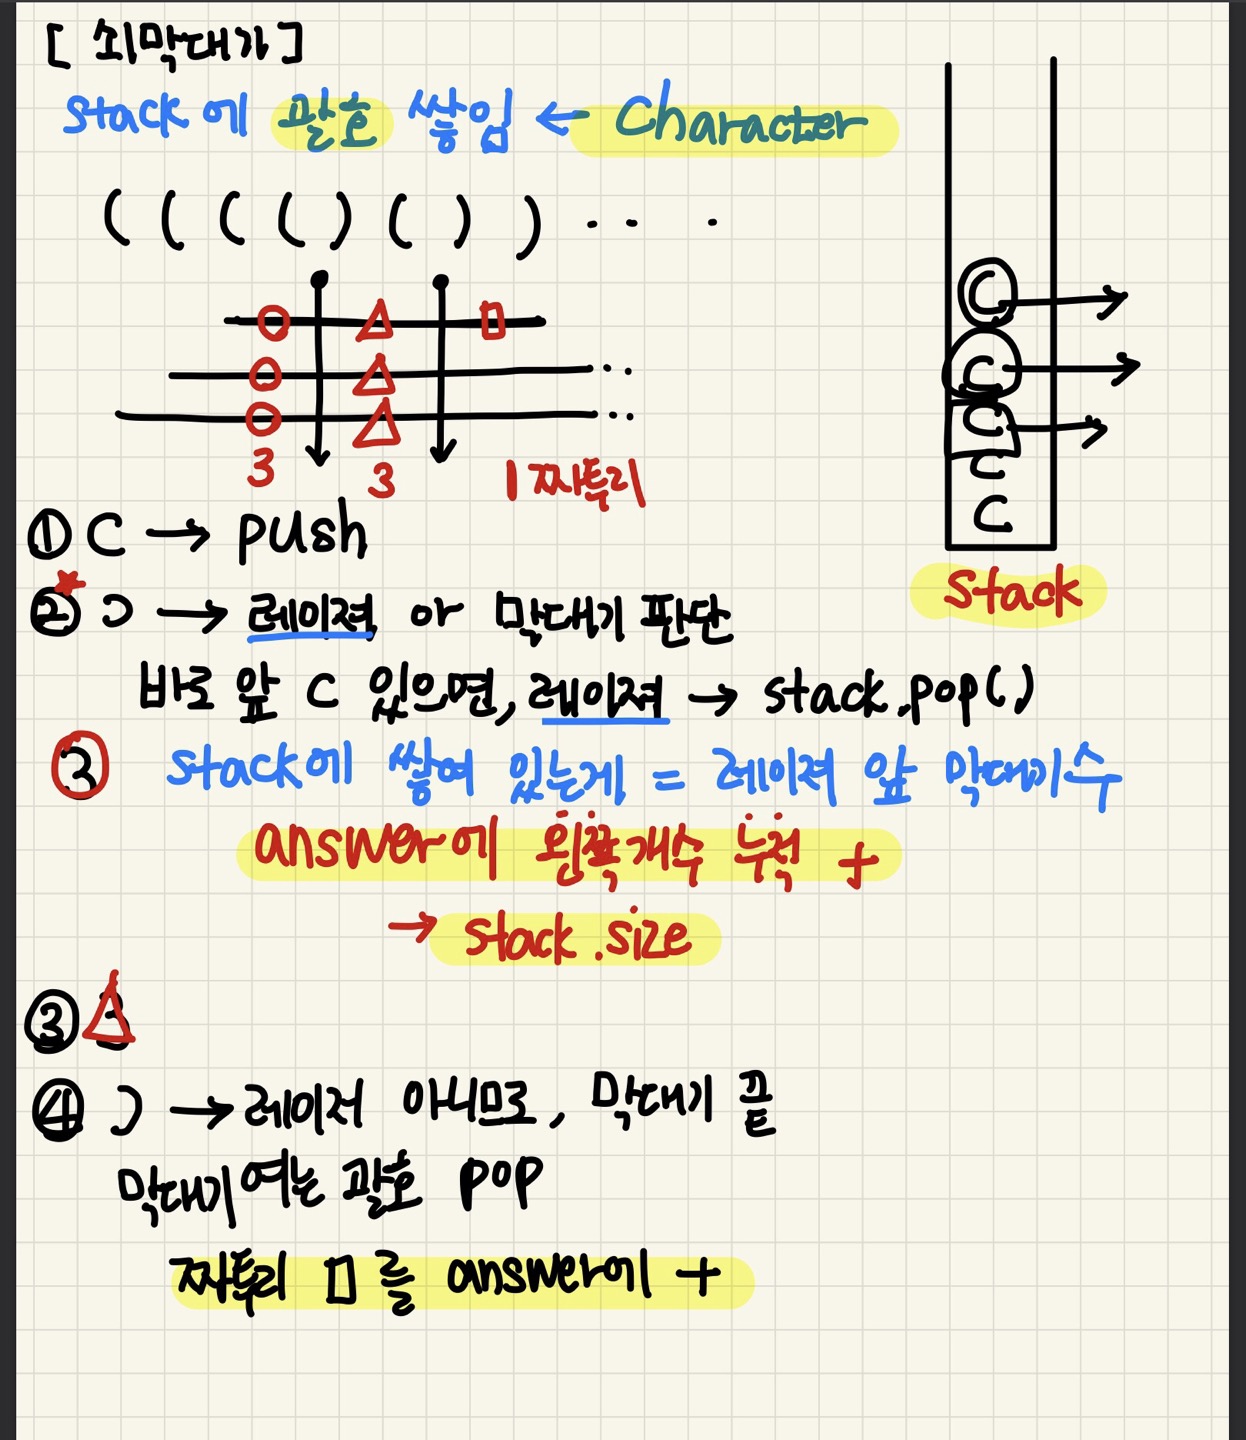 [ 쇠막대기 ]
stack에 괄호 쌓임 ← Character
( ( ( ( ) ( ) ) . . .
3 3 1 짜투리
( ( ( ( (
Stack
① ( → push
② ) → 레이져 or 막대기 판단
바로 앞 ( 있으면, 레이져 → stack.pop()
③ stack에 쌓여 있는게 = 레이져 앞 막대기수
answer에 왼쪽개수 누적 +
→ stack.size
③ 3
④ ) → 레이저 아니므로, 막대기 끝
막대기 여는 괄호 pop
짜투리 □를 answer에 +